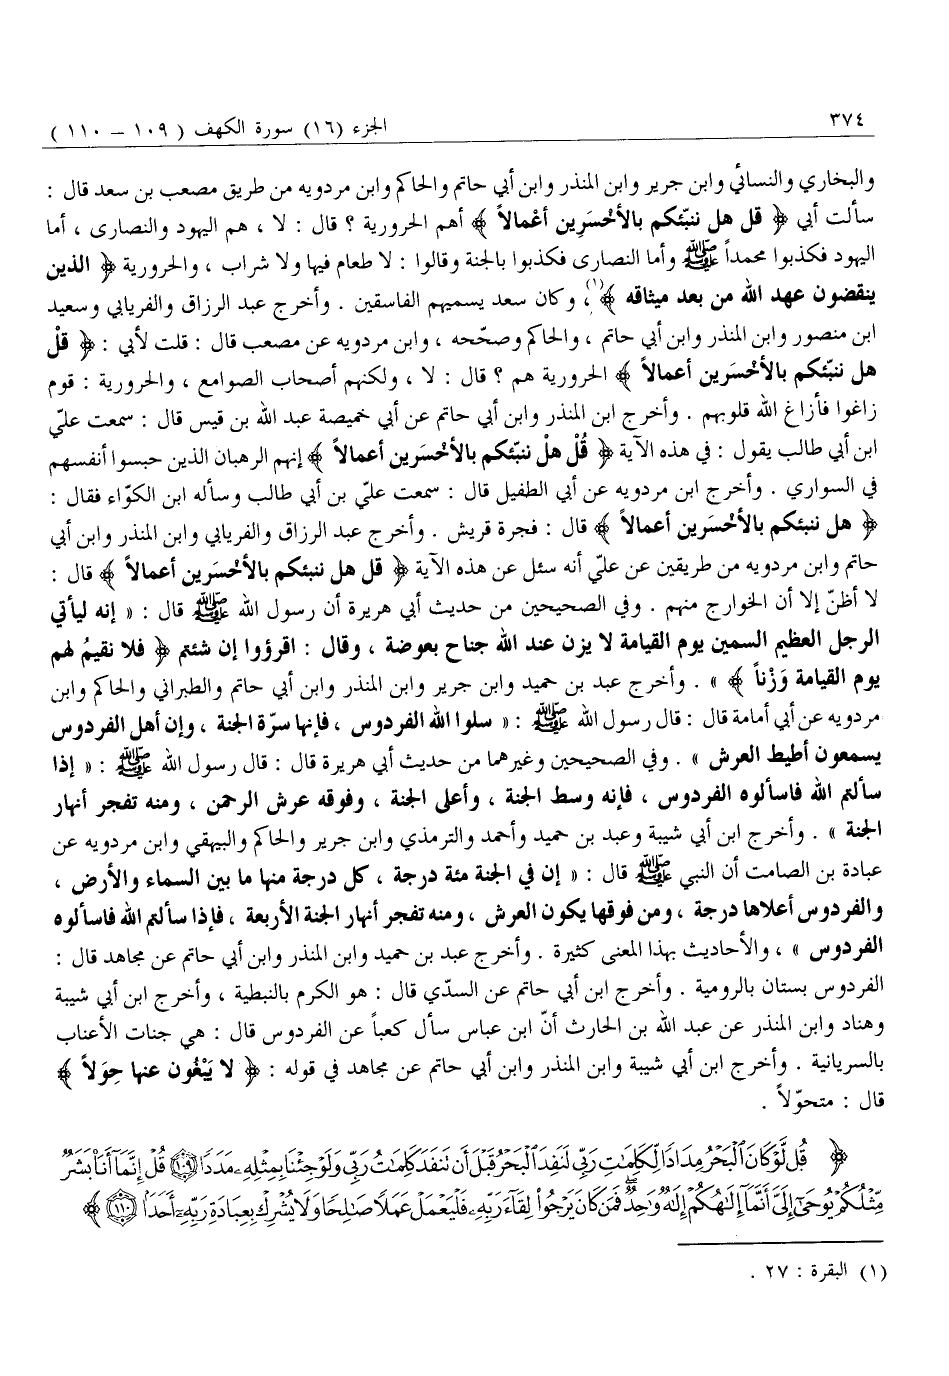 ٣٧٤
الجزء (١٦) سورة الكهف ( ١٠٩ – ١١٠ )
والبخاري والنسائي وابن جرير وابن المنذر وابن أبي حاتم والحاكم وابن مردويه من طريق مصعب بن سعد قال :
سألت أبي ﴿ قل هل ننبّئكم بالأخْسَرِين أعْمالاً ﴾ أهم الحرورية ؟ قال : لا ، هم اليهود والنصارى ، أما
اليهود فكذبوا محمداً ﷺ وأما النصارى فكذبوا بالجنة وقالوا : لا طعام فيها ولا شراب ، والحرورية ﴿ الذين
ينقضون عهد الله من بعد ميثاقه ﴾(١)، وكان سعد يسميهم الفاسقين . وأخرج عبد الرزاق والفريابي وسعيد
ابن منصور وابن المنذر وابن أبي حاتم ، والحاكم وصحّحه ، وابن مردويه عن مصعب قال : قلت لأبي : ﴿ قلْ
هل ننبّئكم بالأخْسَرين أعمالاً ﴾ الحرورية هم ؟ قال : لا ، ولكنهم أصحاب الصوامع ، والحرورية : قوم
زاغوا فأزاغ الله قلوبهم . وأخرج ابن المنذر وابن أبي حاتم عن أبي خميصة عبد الله بن قيس قال : سمعت عليّ
ابن أبي طالب يقول : في هذه الآية ﴿ قُلْ هلْ ننبّئكم بالأخْسَرين أعمالاً ﴾ إنهم الرهبان الذين حبسوا أنفسهم
في السواري . وأخرج ابن مردويه عن أبي الطفيل قال : سمعت عليّ بن أبي طالب وسأله ابن الكوّاء فقال :
﴿ هل ننبئكم بالأخْسَرين أعمالاً ﴾ قال : فجرة قريش . وأخرج عبد الرزاق والفريابي وابن المنذر وابن أبي
حاتم وابن مردويه من طريقين عن عليّ أنه سئل عن هذه الآية ﴿ قل هل ننبئكم بالأخْسَرين أعمالاً ﴾ قال :
لا أظنّ إلا أن الخوارج منهم . وفي الصحيحين من حديث أبي هريرة أن رسول الله ﷺ قال : « إنه ليأتي
الرجل العظيم السمين يوم القيامة لا يزن عند الله جناح بعوضة ، وقال : اقرؤوا إن شئتم ﴿ فلا نقيمُ لهم
يوم القيامة وَزْناً ﴾ » . وأخرج عبد بن حميد وابن جرير وابن المنذر وابن أبي حاتم والطبراني والحاكم وابن
مردويه عن أبي أمامة قال : قال رسول الله ﷺ : « سلوا الله الفردوس ، فإنها سرّة الجنة ، وإن أهل الفردوس
يسمعون أطيط العرش » . وفي الصحيحين وغيرهما من حديث أبي هريرة قال : قال رسول الله ﷺ : « إذا
سألتم الله فاسألوه الفردوس ، فإنه وسط الجنة ، وأعلى الجنة ، وفوقه عرش الرحمن ، ومنه تفجر أنهار
الجنة » . وأخرج ابن أبي شيبة وعبد بن حميد وأحمد والترمذي وابن جرير والحاكم والبيهقي وابن مردويه عن
عبادة بن الصامت أن النبي ﷺ قال : « إن في الجنة مئة درجة ، كل درجة منها ما بين السماء والأرض ،
والفردوس أعلاها درجة ، ومن فوقها يكون العرش ، ومنه تفجر أنهار الجنة الأربعة ، فإذا سألتم الله فاسألوه
الفردوس » ، والأحاديث بهذا المعنى كثيرة . وأخرج عبد بن حميد وابن المنذر وابن أبي حاتم عن مجاهد قال :
الفردوس بستان بالرومية . وأخرج ابن أبي حاتم عن السدّي قال : هو الكرم بالنبطية ، وأخرج ابن أبي شيبة
وهناد وابن المنذر عن عبد الله بن الحارث أنّ ابن عباس سأل كعباً عن الفردوس قال : هي جنات الأعناب
بالسريانية . وأخرج ابن أبي شيبة وابن المنذر وابن أبي حاتم عن مجاهد في قوله : ﴿ لا يَبْغُون عنها حِوَلاً ﴾
قال : متحوّلاً .
﴿ قُل لَّوْ كَانَ ٱلْبَحْرُ مِدَادًا لِّكَلِمَٰتِ رَبِّى لَنَفِدَ ٱلْبَحْرُ قَبْلَ أَن تَنفَدَ كَلِمَٰتُ رَبِّى وَلَوْ جِئْنَا بِمِثْلِهِۦ مَدَدًا ۝١٠٩ قُلْ إِنَّمَآ أَنَا۠ بَشَرٌ
مِّثْلُكُمْ يُوحَىٰٓ إِلَىَّ أَنَّمَآ إِلَٰهُكُمْ إِلَٰهٌ وَٰحِدٌ ۖ فَمَن كَانَ يَرْجُوا۟ لِقَآءَ رَبِّهِۦ فَلْيَعْمَلْ عَمَلًا صَٰلِحًا وَلَا يُشْرِكْ بِعِبَادَةِ رَبِّهِۦٓ أَحَدًۢا ۝١١٠ ﴾
(١) البقرة : ٢٧ .